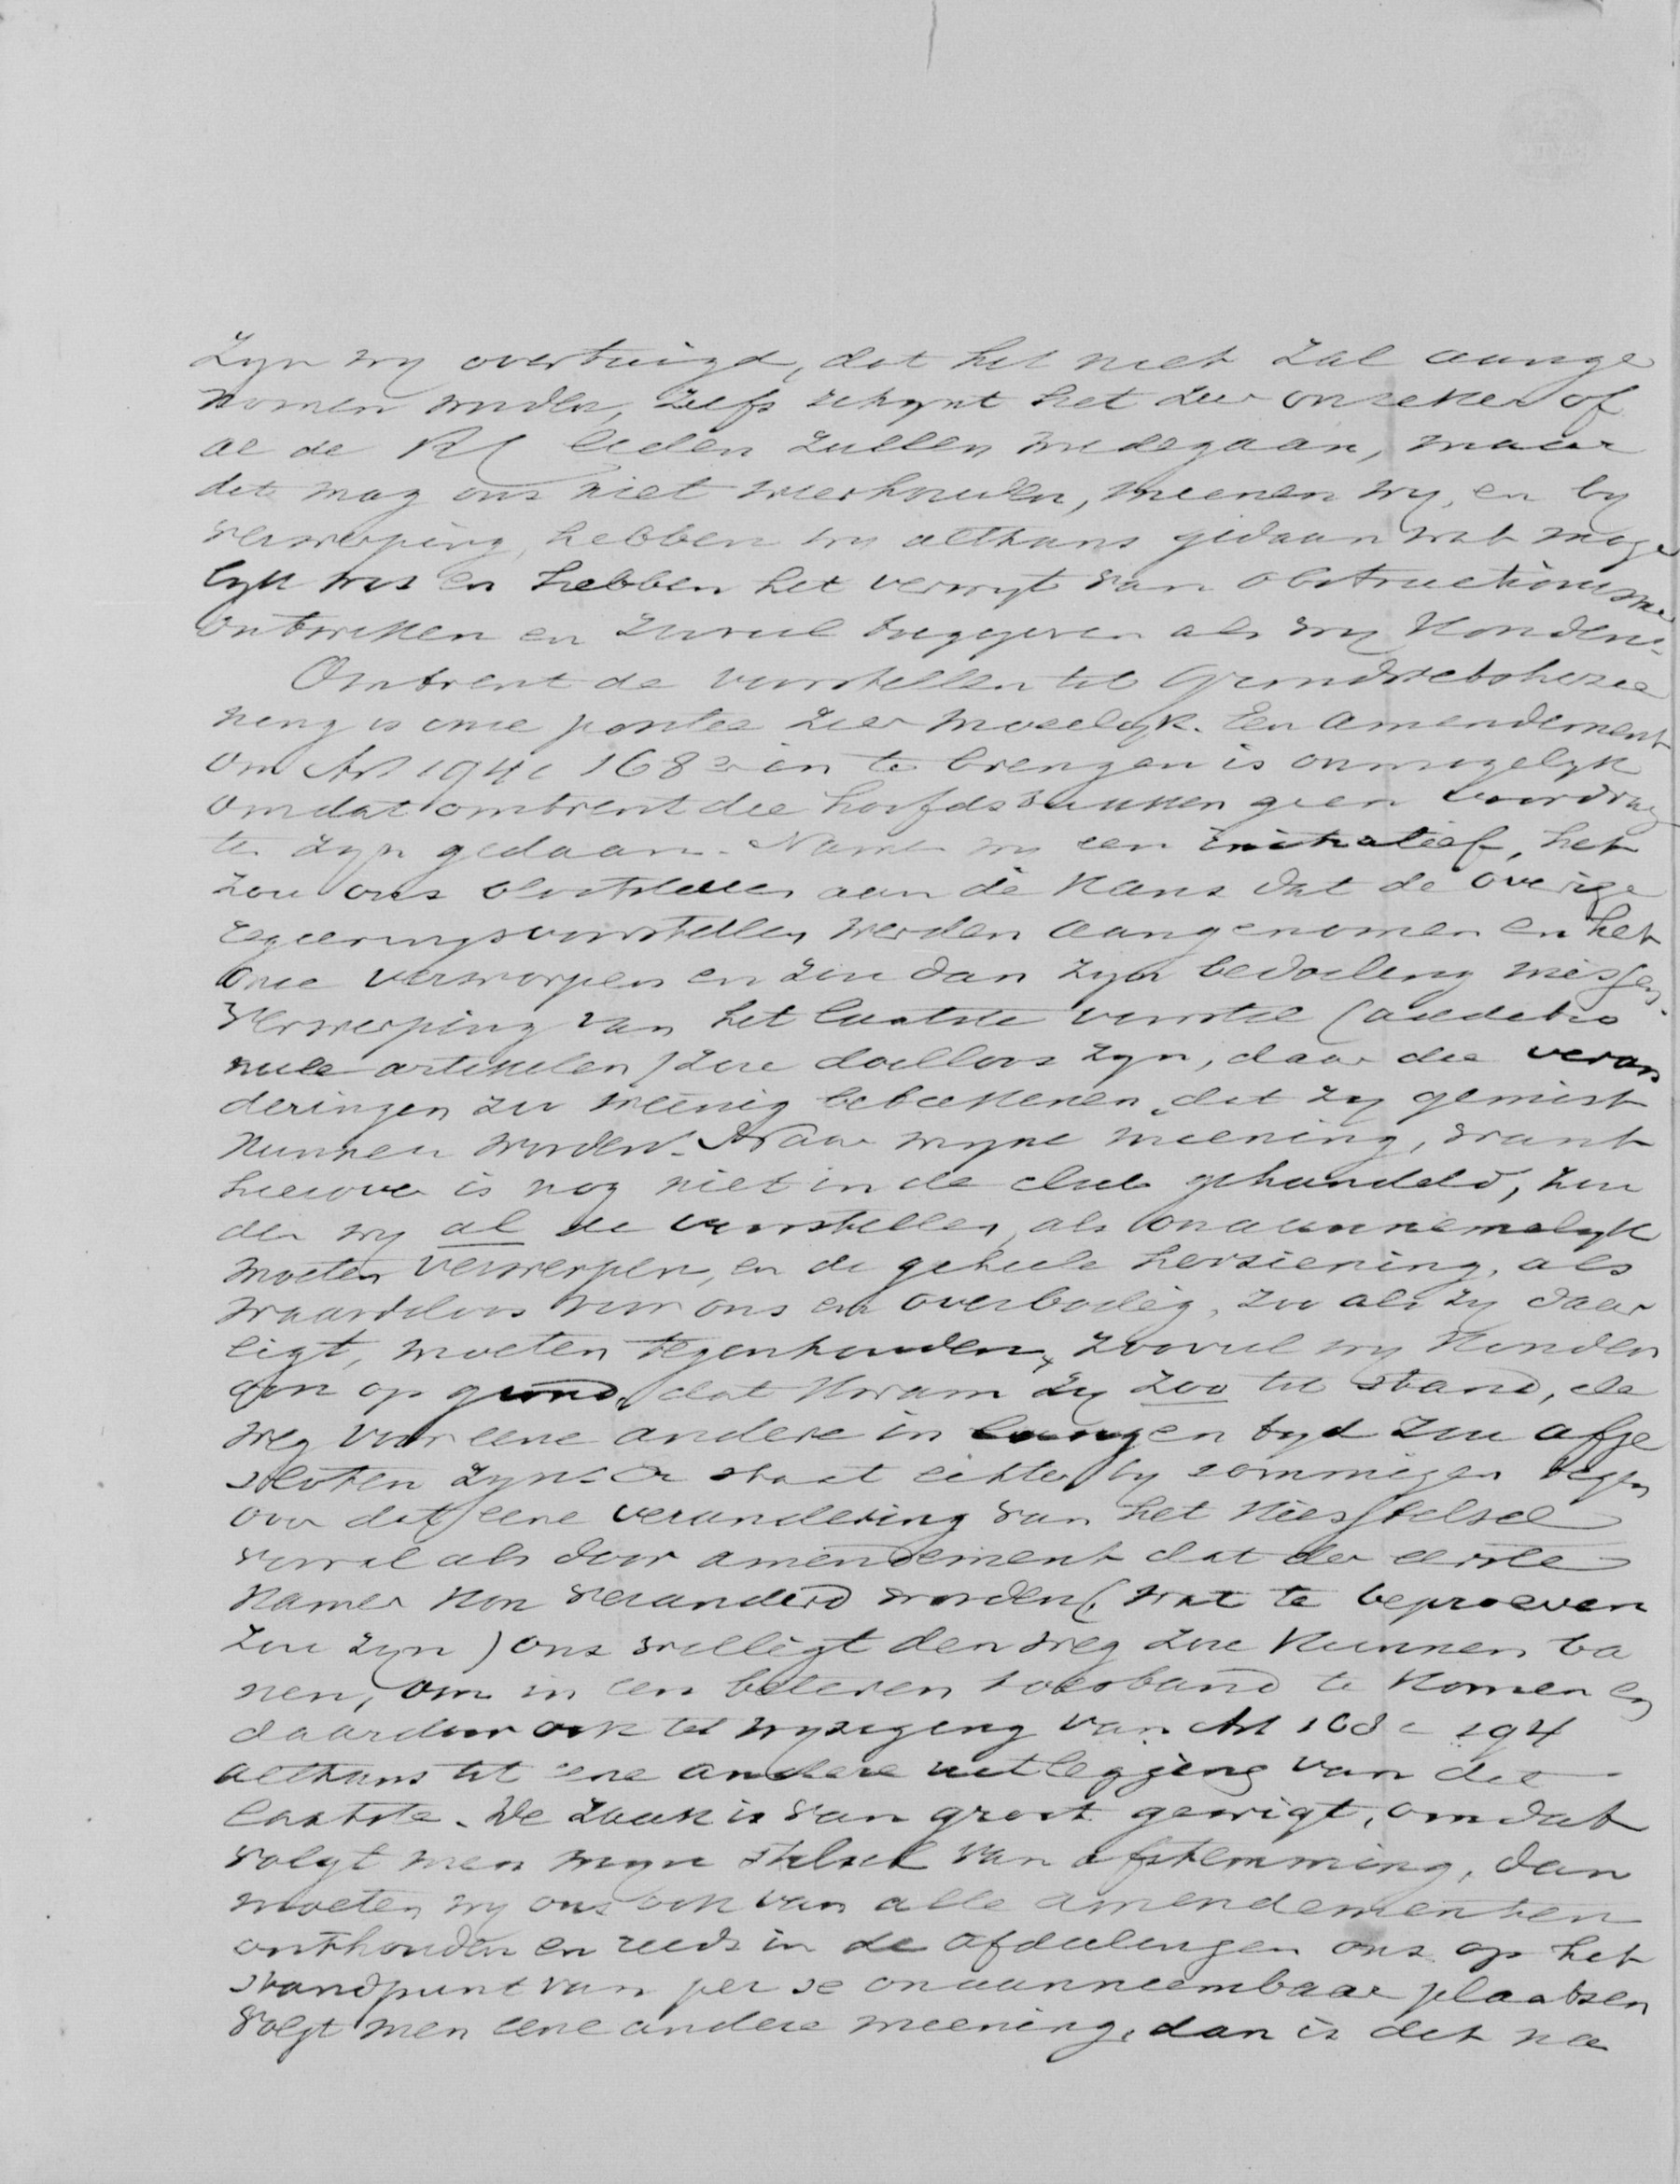 Zyn wy overtuigd, dat het niet zal aange
nomen worden, zelfs schynt het zeer onzeker of
al de RC leden zullen medegaan, maar
dit mag ons niet weerhouden, meenen wy, en by
verwerping, hebben wy althans gedaan wat moge
lyk was en hebben het verwyt van obstructionisme
ontweken en zooveel toegegeven als wy konden.
Omtrent de voorstellen tot Grondwetsherzie
ning is onze positie zeer moeielyk. Een amendement
om Art 194 168 in te brengen is onmogelyk
omdat omtrent die hoofdstukken geen voordrag
te zyn gedaan. Namen wy een initiatief, het
zou ons blootstellen aan de kans dat de overige
regeeringsvoorstellen werden aangenomen en het
onze verworpen en zou dan zyn bedoeling missen.
Verwerping van het laatste voorstel (additio
neele artikelen) zou doelloos zyn, daar die veran
deringen zoo weinig beteekenen, dat zy gemist
kunnen worden. Naar myne meening, want
hierover is nog niet in de club gehandeld, zou
den wy al de voorstellen, als onaannemelyk
moeten verwerpen, en de geheele herziening, als
waardeloos voor ons en overbodig, zoo als zy daar
ligt, moeten tegenhouden, zooveel wy konden
en op grond, dat kwam zy zoo tot stand, de
weg voor eene andere in langen tyd zou afge
sloten zyn. Er staat echter by sommigen tegen
over dat eene verandering van het kiesstelsel
vooral als door amendement dat der eerste
Kamer kon veranderd worden (wat te beproeven
zou zyn) ons wellicht den weg zou kunnen ba
nen, om in een beteren toestand te komen en
daardoor ook tot wyziging van Art 168 194
althans tot eene andere uitlegging van dit
laatste. De zaak is van groot gewigt, omdat
volgt men myn stelsel van afstemming, dan
moeten wy ons ook van alle amendementen
onthouden en reeds in de afdeelingen ons op het
standpunt van per se onaanneembaar plaatsen
Volgt men eene andere meening, dan is dit na